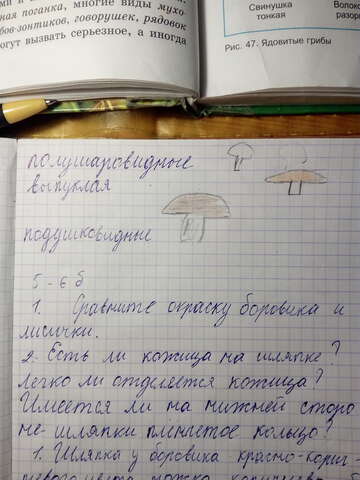 ная поганка, многие виды мухо-
бов-зонтиков, говорушек, рядовок
огут вызвать серьезное, а иногда
Свинушка
тонкая
Волоко
разор
Рис. 47. Ядовитые грибы
полушаровидные
выпуклая
подушковидные
5-6 б
1. Сравните окраску боровика и
лисички.
2. Есть ли кожица на шляпке?
Легко ли отделяется кожица?
Имеется ли на нижней сторо
не шляпки пленчатое кольцо?
1. Шляпка у боровика красно-корич-
невого цвета ножка